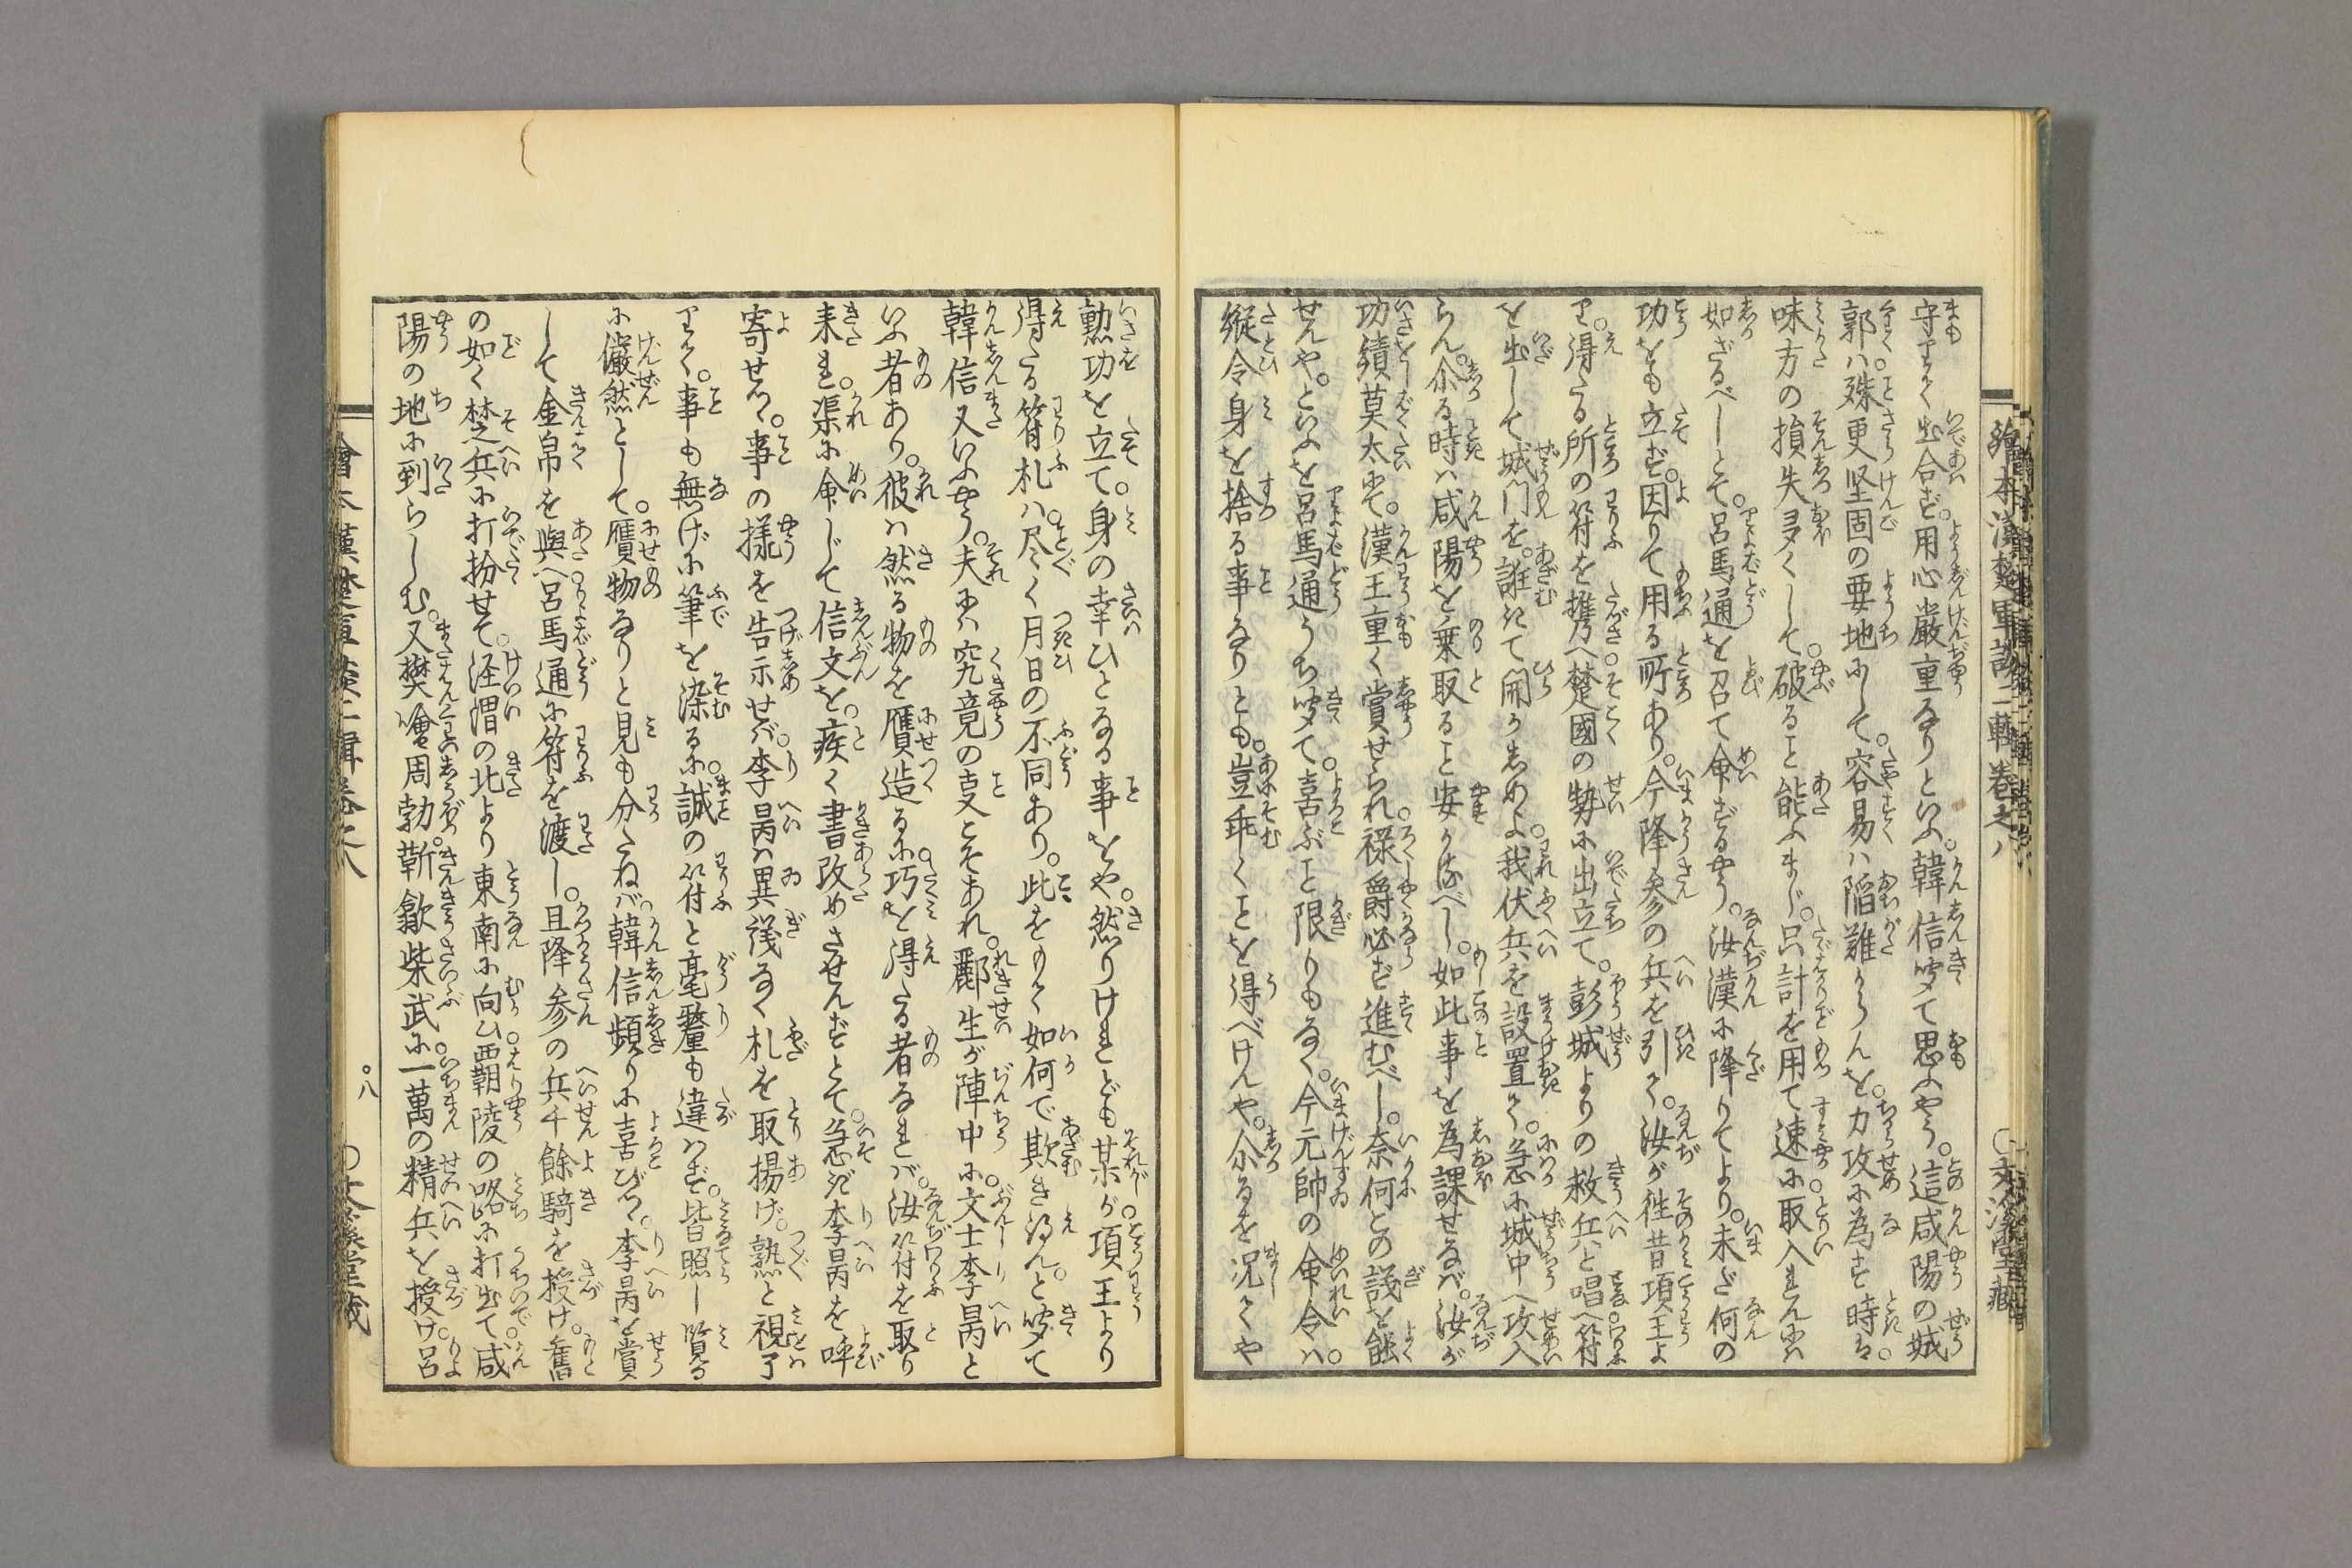 守りて出合ず。用心厳重なりといふ。韓信聞て思ふやう。這咸陽の城
郭ハ。殊更堅固の要地にして。容易ハ陥難からんを。力攻に為す時ハ。
味方の損失多くして。破ること能ふまじ。只計を用て速に取入れんにハ
如ざるべしとて。呂馬通を召て命ずるやう。汝漢に降りてより。未だ何の
功をも立ず。因りて用る所あり。今降参の兵を引て。汝が往昔項王よ
り。得たる所の符を携へ楚國の勢に出立て。彭城よりの救兵と唱へ符
を出して城門を。誑きて開かしめよ。我伏兵を設置て。急に城中へ攻入
らん。尓る時ハ咸陽を乗取ること安かるべし。如此事を為課せなバ。汝が
功績莫太にて。漢王重く賞せられ。禄爵必ず進むべし。奈何との議を能
せんや。といふを呂馬通うち聞て。喜ぶこと限りもなく。今元帥の命令ハ。
縦令身を捨る事なりとも。豈乖くことを得べけんや。尓るを況てや
勲功を立て。身の幸ひとなる事をや。然りけれども某が。項王より
得たる符札ハ。尽く月日の不同あり。此をもて如何で欺き得んと。聞て
韓信又いふやう。夫にハ究竟の叓こそあれ。酈生が陣中に。文士李昺と
いふ者あり。彼ハ然る物を贋造るに。巧を得たる者なれバ。汝符を取り
来れ。渠に命じて信文を。疾く書改めさせんずとて。急ぎ李昺を呼
寄せつ。事の様を告示せバ。李昺ハ異議なく札を取揚げ。熟と視了
りて。事も無げに筆を染るに。誠の符と毫釐も違ハず。皆照し覧る
に儼然として。贋物なりと見も分たねバ。韓信頻りに喜びつ。李昺を賞
して金帛を與へ呂馬通に符を渡し。且降参の兵千餘騎を授け。舊
の如く楚兵に打扮せて。涇渭の北より東南に向ひ覇陵の路に打出て咸
陽の地に到らしむ。又樊噲周勃。靳歙柴武に。一萬の精兵を授け。呂
繪本漢楚軍談二輯巻之八
八
○文溪堂藏